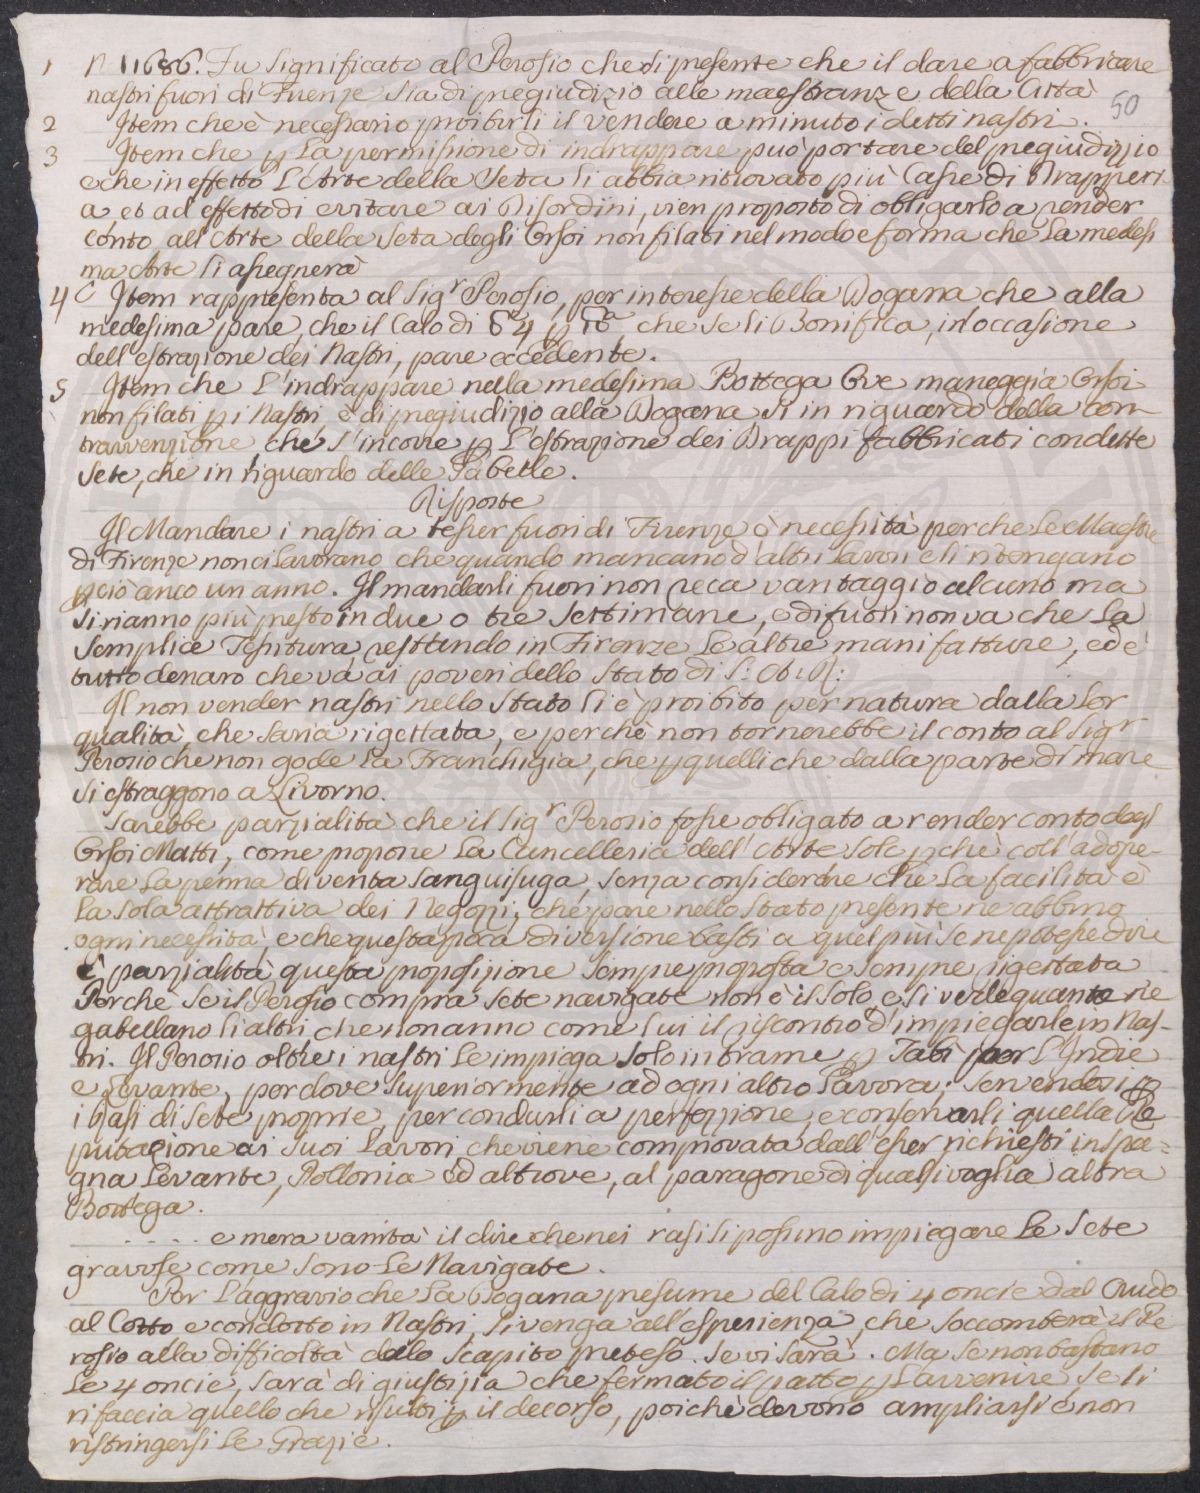 1 N 11686. Fu significato al Perosio che di presente che il dare a fabbricare
nastri fuori di Firenze sia di pregiudizio alle maestranze della Città
50
2 Item che è necessario proibirli il vendere a minuto i detti nastri.
3 Item che p la permissione di indrappare può portare del pregiudizzio
e che in effetto L'Arte della Seta li abbia ritrovato più Casse di Drapperi-
a et ad effetto di evitare ai Disordini, vien proposto di obligarlo a render
conto all'Arte della Seta degli Orsoi non filati nel modo e forma che La medesi
ma Arte li assegnerà
4 Item rappresenta al Sigr Perosio, per interesse della Dogana che alla
medesima pare, che il Calo di 4 p che se li Bonifica, in occasione
dell'estrazione dei Nastri, pare eccedente.
5 Item che L'indrappare nella medesima Bottega Ove maneggia Orsoi
non filati p i Nastri, è di pregiudizio alla Dogana si in riguardo della con-
travvenzione che s'incorre p L'estrazione dei Drappi fabbricati con dette
Sete, che in riguardo delle Gabelle.
Risposte
Il Mandare i nastri a tesser fuori di Firenze è necessità perche Le Maestre
di Firenze non ci Lavorano che quando mancano d'altri Lavori e li ritengano
pciò anco un anno. Il mandarli fuori non reca vantaggio alcuno ma
si rianno più presto in due o tre Settimane, e di fuori non va che La
Semplice Tessitura, restando in Firenze Le altre manifatture, ed è
tutto denaro che và ai poveri dello Stato di S: A: R:
Il non vender nastri nello Stato li è proibito per natura dalla Lor
qualità, che saria rigettata, e perchè non tornerebbe il conto al Sigr
Perosio che non gode La Franchigia, che p quelli che dalla parte di mare
si estraggono a Livorno.
Sarebbe parzialità che il Sigr Perosio fosse obligato a render conto degl'
Orsoi Matti, come propone La Cancelleria dell'Arte solo pchè coll'adope-
rare La penna diventa sanguisuga, senza considerare che La facilità è
La sola attrattiva dei Negozzi, che pare nello Stato presente ne abbino
ogni necessità, e che questa poca diversione basti a quel più se ne potesse dire
è parzialità questa proposizione sempre proposta e sempre rigettata
Perche se il Perosio compra sete navigate non è il solo, e si vede quante ne
gabellano li altri che non anno come Lui il riscontro d'impiegarle in Nas-
tri. Il Perosio oltre i nastri Le impiega solo in trame p Tabi per L'Indie
e Levante, per dove superiormente ad ogni altro Lavora; servendosi p
i Rasi di sete proprie, per condurli a perfezzione, e conservarli quella Re
putazione ai suoi Lavori che viene comprovata dall'esser richiesti in Spa=
gna Levante, Pollonia ed altrove, al paragone di qualsivoglia altra
Bottega.
..... e mera vanità il dire che nei rasi si possino impiegare Le Sete
gravose come sono Le Navigate.
Per L'aggravio che La Dogana presume del Calo di 4 oncie dal Crudo
al Cotto e condotto in Nastri, si venga all'esperienza, che soccomberà il Pe
rosio alla difficoltà dello scapito preteso. Se vi sarà. Ma se non bastano
Le 4 oncie, sarà di giustizia che fermato il patto p L'avvenire, se li
rifaccia quello che risulti p il decorso, poichè devono ampliarsi e non
ristringersi Le Grazie.